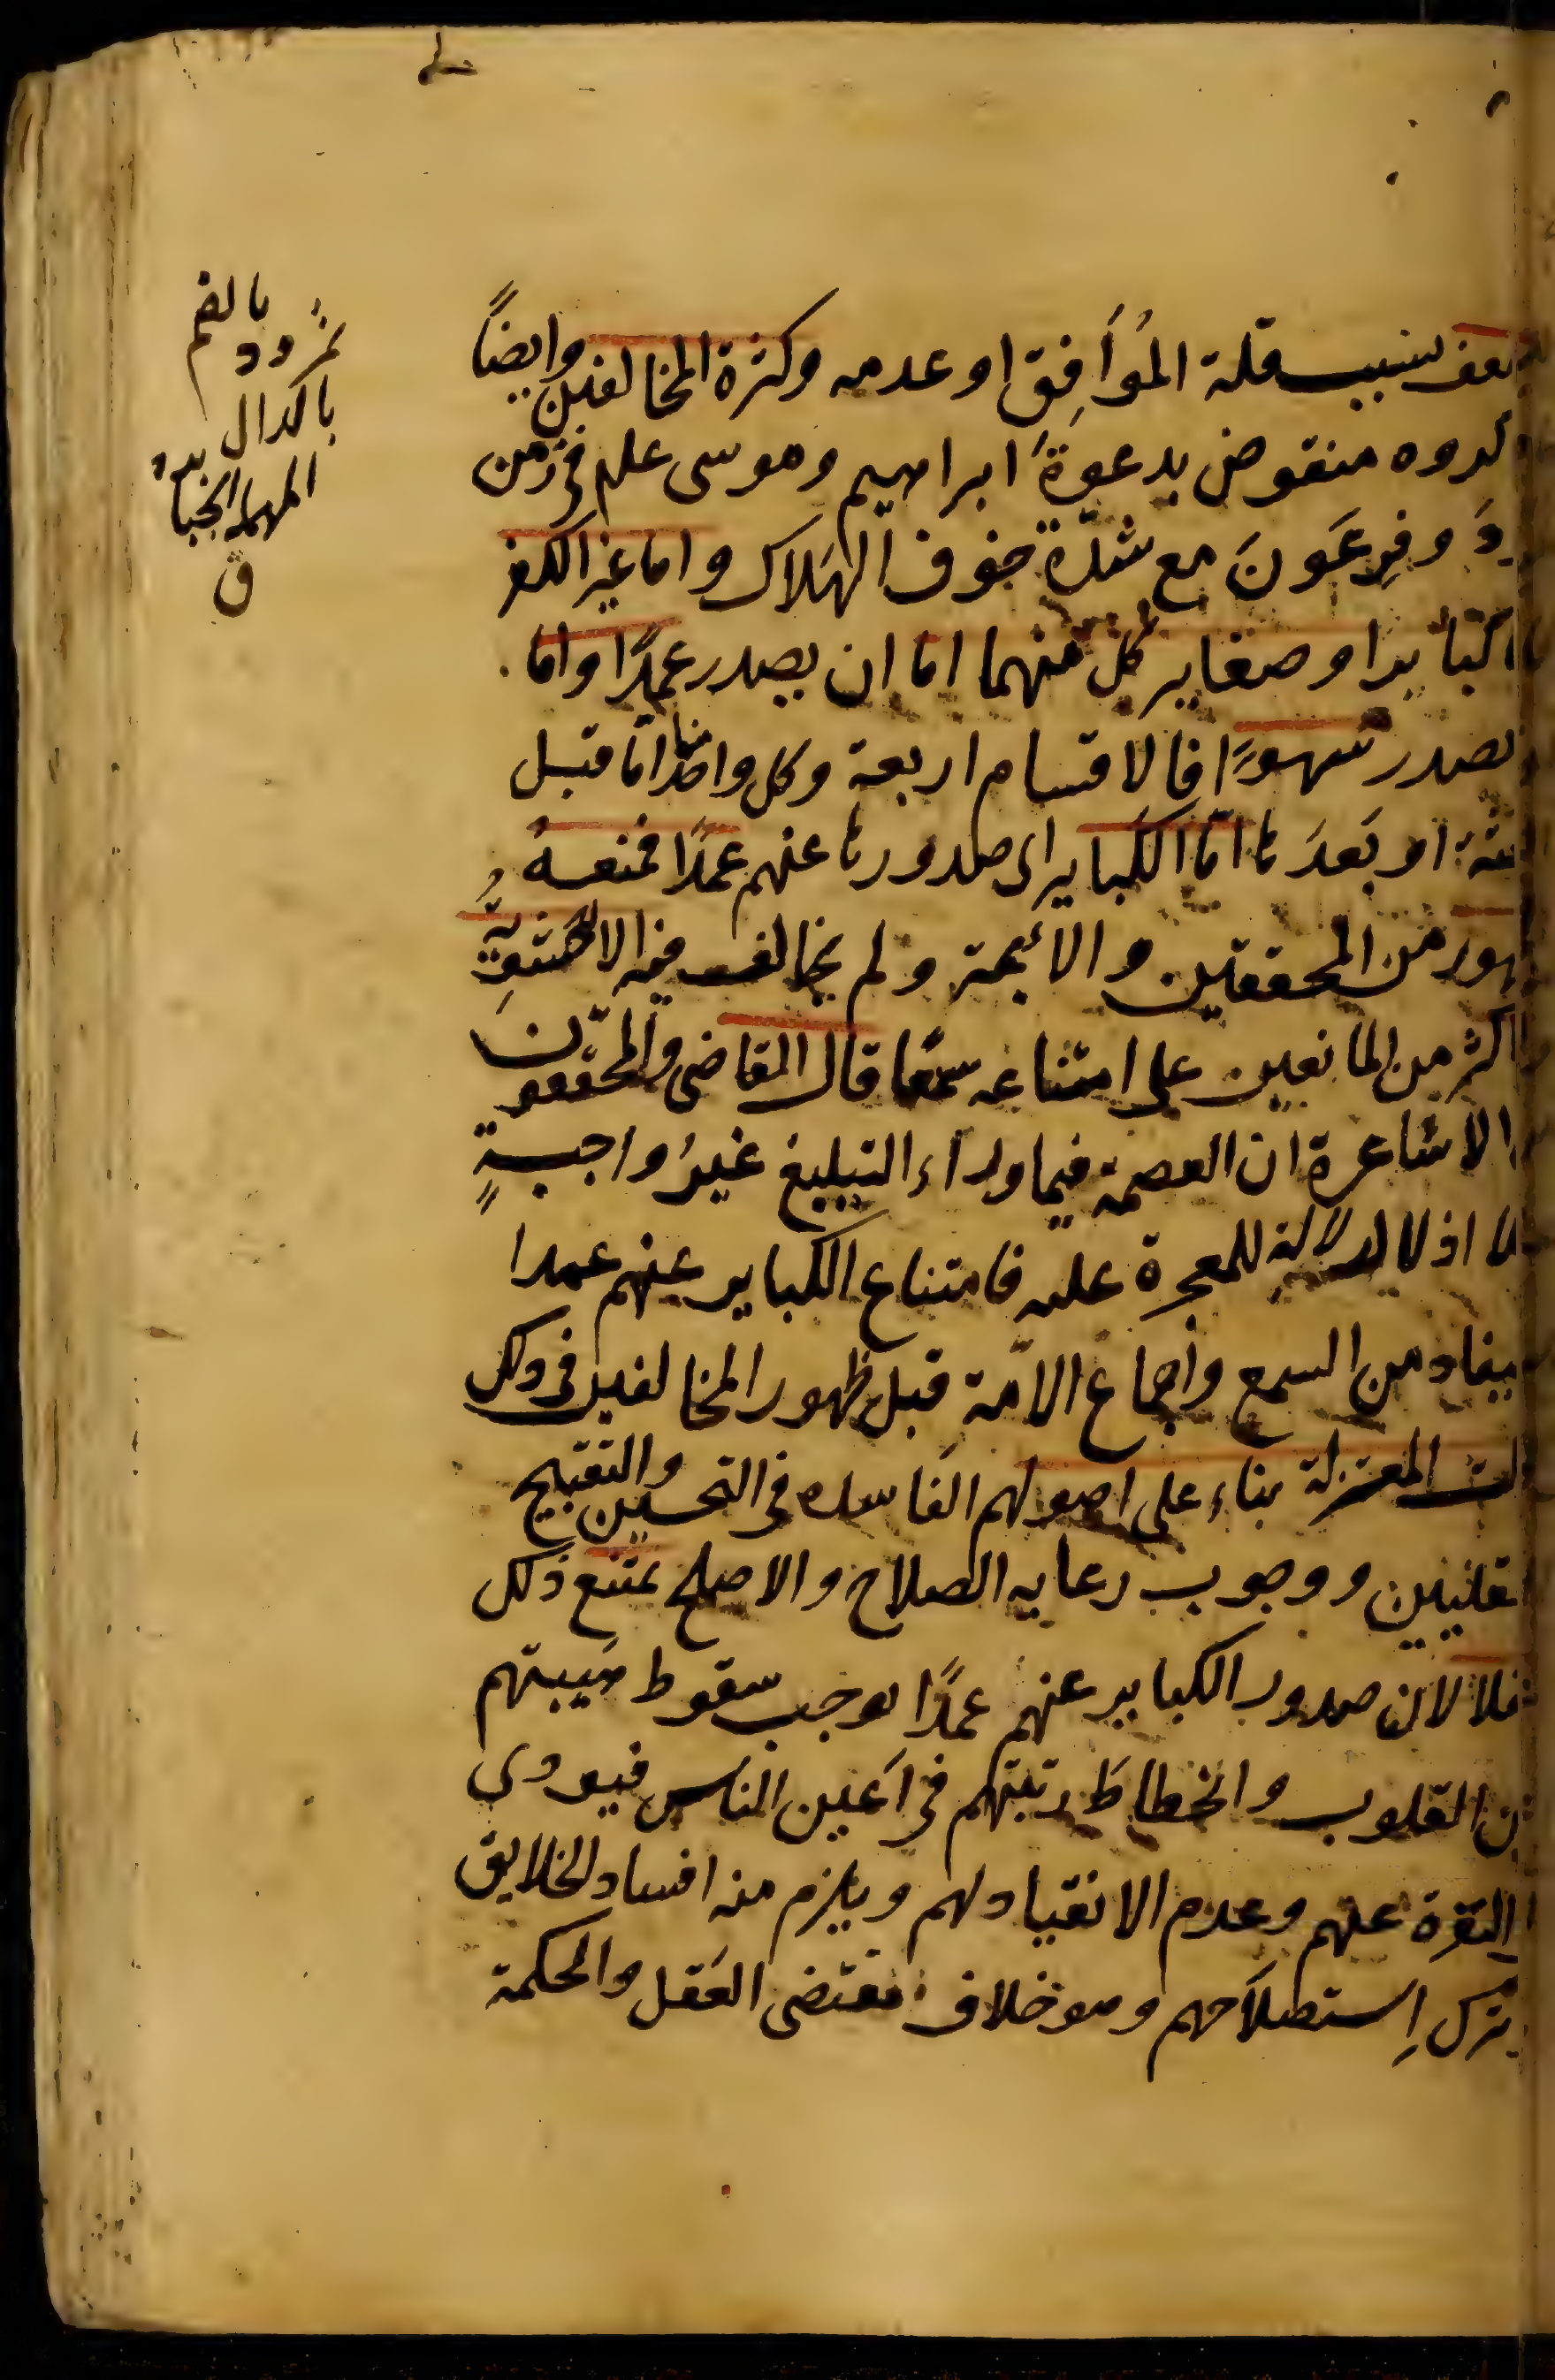 لضعف بسبب قلة المُوَافِق او عدمه وكثرة المخالفين وايضًا
ذكروه منقوض بدعوة ابراهيم وموسى علم فى زمن
دَ وفِرعَونَ مع شدّة خوف الهَلاك واما غير الكفر
كبايرا وصغاير كل منهما اما ان يصدر عمدًا واما
يصدر سهوًا فالاقسام اربعة وكل واحد منها اما قبل
ثة او بَعدَها امّا الكبايراى صدورها عنهم عمدًا فمنعه
هور من المحققين والأئمة ولم يخالف فيه الا الحشوِيّة
اكثر من المانعين على امتناعه سمعًا قال القاضى والمحققون
الاشاعرة ان العصمة فيما وراء التبليغ غيرُ واجبةٍ
اذ لا دلالةَ للمعجزة عليه فامتناع الكباير عنهم عمدا
يفاد من السمع واجماع الامّة قبل ظهور المخالفين فى ذلك
لت المعتزلة بناء على اصولهم الفاسده فى التحسين والتقبيح
عقليين ووجوب رعايه الصلاح والاصلح يمتنع ذلك
قلا لان صدور الكباير عنهم عمدًا يوجب سقوط هَيبتهم
ن القلوب وانحطاطَ رتبتهم فى اَعين الناس فيودى
النفرة عنهم وعدم الانقياد لهم ويلزم منه افساد الخلايق
ترك اِستصلاَحهم وهو خلاف مقتضى العَقل والحكمة
نمرود بالضم
بالدال
المهملة الجبابرة
ق